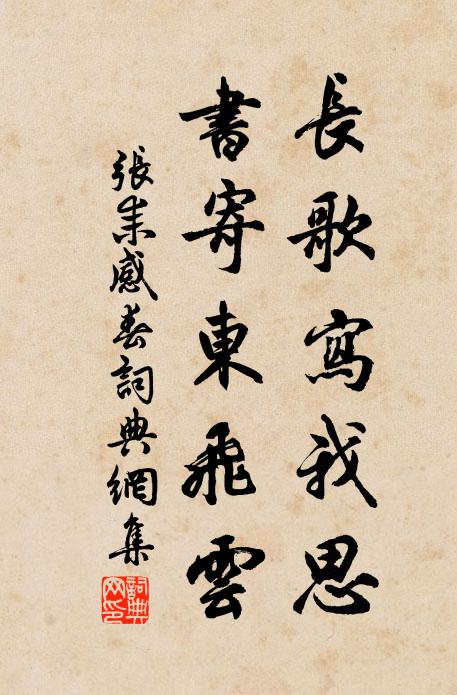 長歌寫我思
書寄東飛雲
張耒感春詞典網集
詞典網印